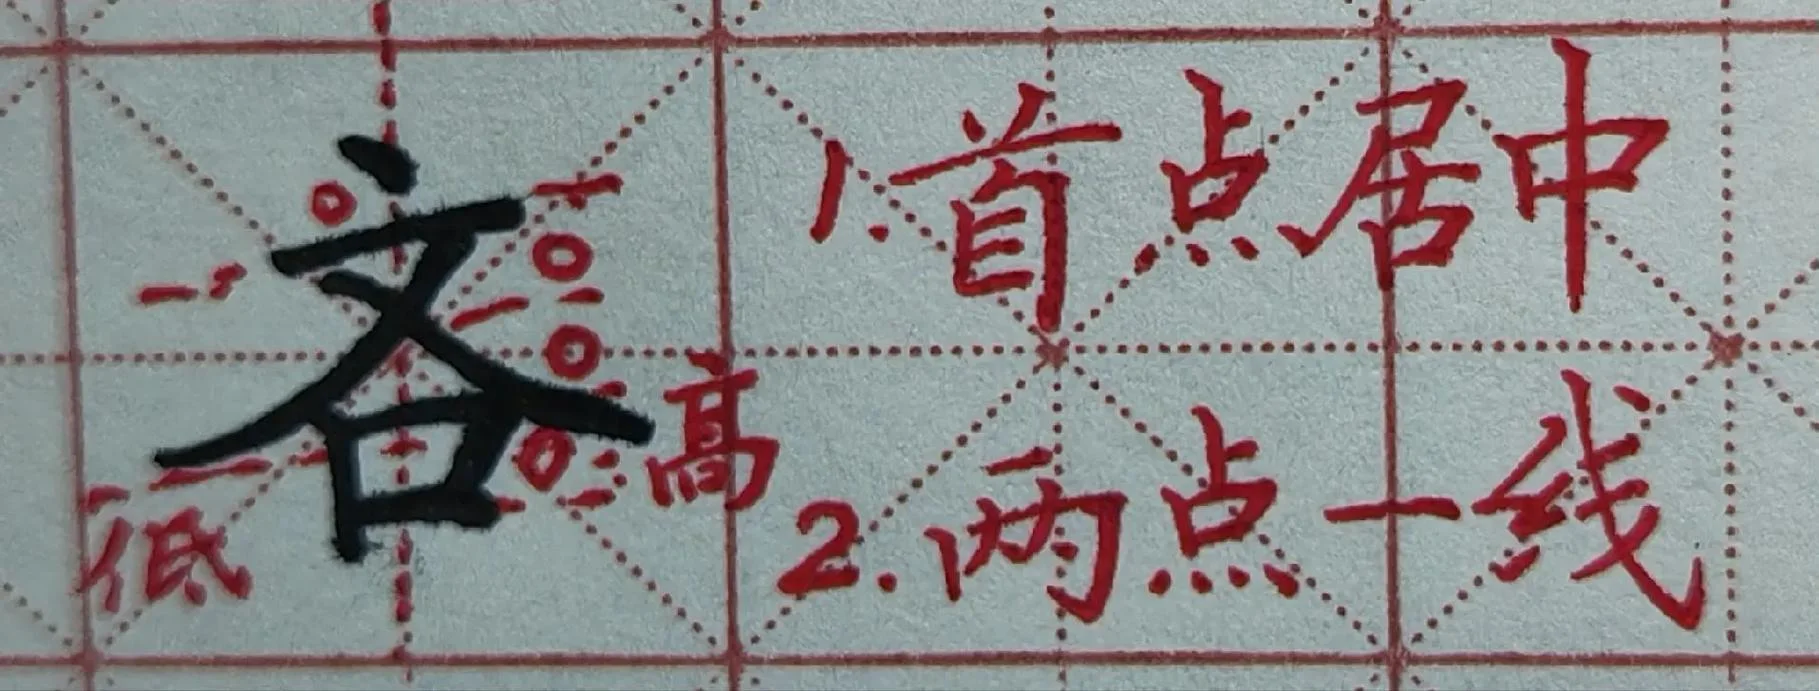 吝
低
高
1.首点居中
2.两点一线